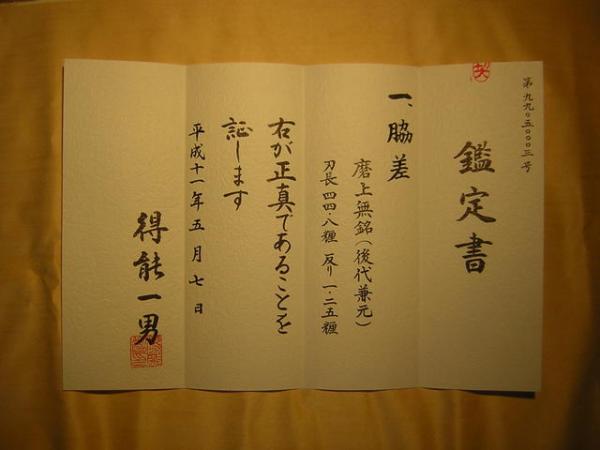 第九九〇五〇〇〇三号
鑑定書
一、脇差
磨上無銘(後代兼元)
刃長 四四・八糎 反り 一・二五糎
右が正真であることを
証します
平成十一年五月七日
得能一男